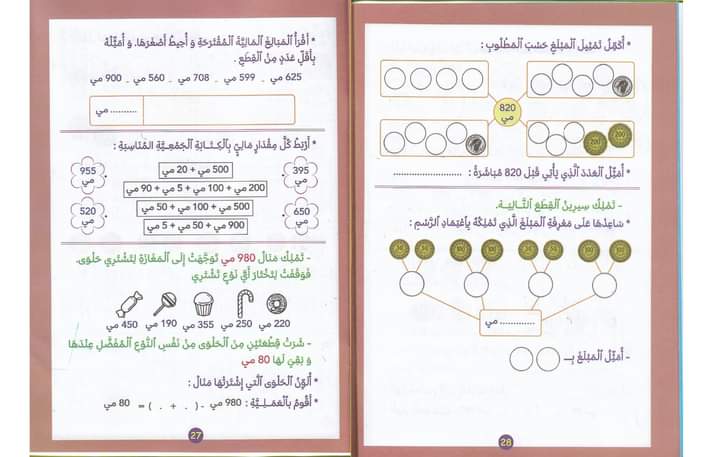 * أَقْرَأُ ٱلْمَبَالِغَ ٱلْمَالِيَّةَ ٱلْمُقْتَرَحَةَ وَ أُحِيطُ أَصْغَرَهَا. وَ أُمَثِّلُهُ
بِأَقَلِّ عَدَدٍ مِنَ ٱلْقِطَعِ .
625 مي ـ 599 مي ـ 708 مي ـ 560 مي ـ 900 مي
.......... مي
* أَرْبِطُ كُلَّ مِقْدَارٍ مَالِيٍّ بِٱلْكِتَابَةِ ٱلْجَمْعِيَّةِ ٱلْمُنَاسِبَةِ :
395 مي
500 مي + 20 مي
955 مي
200 مي + 100 مي + 5 مي + 90 مي
650 مي
500 مي + 100 مي + 50 مي
520 مي
900 مي + 50 مي + 5 مي
- تَمْلِكُ مَنَالُ 980 مي تَوَجَّهَتْ إِلَى ٱلْمَغَازَةِ لِتَشْتَرِيَ حَلْوَى.
فَوَقَفَتْ لِتَخْتَارَ أَيَّ نَوْعٍ تَشْتَرِي
220 مي 250 مي 355 مي 190 مي 450 مي
- شَرَتْ قِطْعَتَيْنِ مِنَ ٱلْحَلْوَى مِنْ نَفْسِ ٱلنَّوْعِ ٱلْمُفَضَّلِ عِنْدَهَا
وَ بَقِيَ لَهَا 80 مي
* أُلَوِّنُ ٱلْحَلْوَى ٱلَّتِي إِشْتَرَتْهَا مَنَالُ :
* أَقُومُ بِٱلْعَمَـلِـيَّةِ : 980 مي - ( . + . ) = 80 مي
27
* أُكَمِّلُ تَمْثِيلَ ٱلْمَبْلَغِ حَسَبَ ٱلْمَطْلُوبِ :
820
مي
200 200
* أُمَثِّلُ ٱلْعَدَدَ ٱلَّذِي يَأْتِي قَبْلَ 820 مُبَاشَرَةً : ........................
- تَمْلِكُ سِيرِينُ ٱلْقِطَعَ ٱلتَّـالِيَـةَ.
* سَاعِدْهَا عَلَى مَعْرِفَةِ ٱلْمَبْلَغِ ٱلَّذِي تَمْلِكُهُ بِٱعْتِمَادِ ٱلرَّسْمِ :
............. مي
- أُمَثِّلُ ٱلْمَبْلَغَ بِـ
28